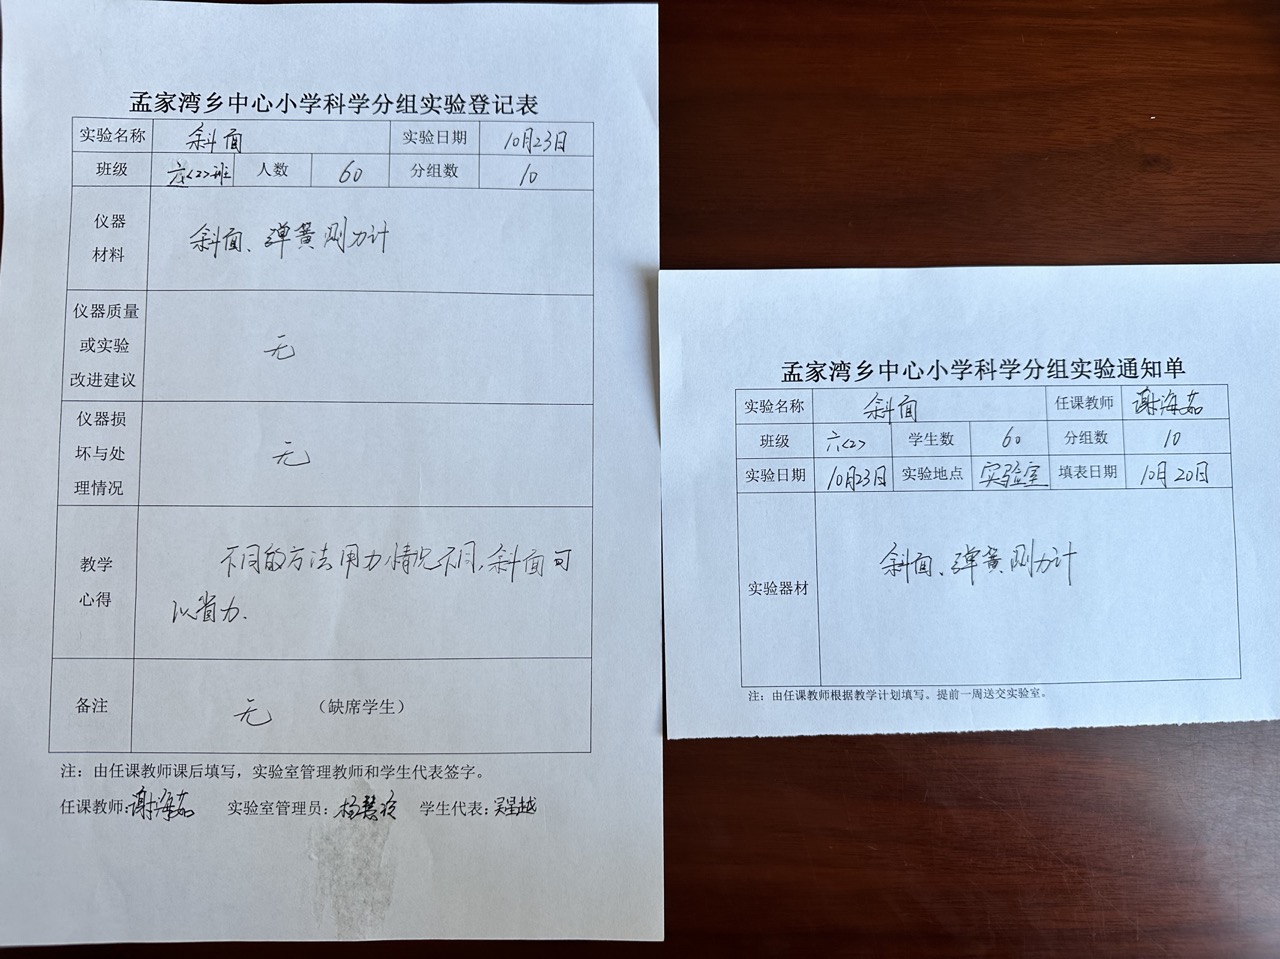 孟家湾乡中心小学科学分组实验登记表
实验名称 斜面 实验日期 10月23日
班级 六<2>班 人数 60 分组数 10
仪器
材料
斜面、弹簧测力计
仪器质量
或实验
改进建议
无
仪器损
坏与处
理情况
无
教学
心得
不同的方法用力情况不同,斜面可
以省力.
备注 无 （缺席学生）
注：由任课教师课后填写，实验室管理教师和学生代表签字。
任课教师:谢海茹 实验室管理员: 学生代表:吴星越
孟家湾乡中心小学科学分组实验通知单
实验名称 斜面 任课教师 谢海茹
班级 六<2> 学生数 60 分组数 10
实验日期 10月23日 实验地点 实验室 填表日期 10月20日
实验器材 斜面、弹簧测力计
注：由任课教师根据教学计划填写。提前一周送交实验室。